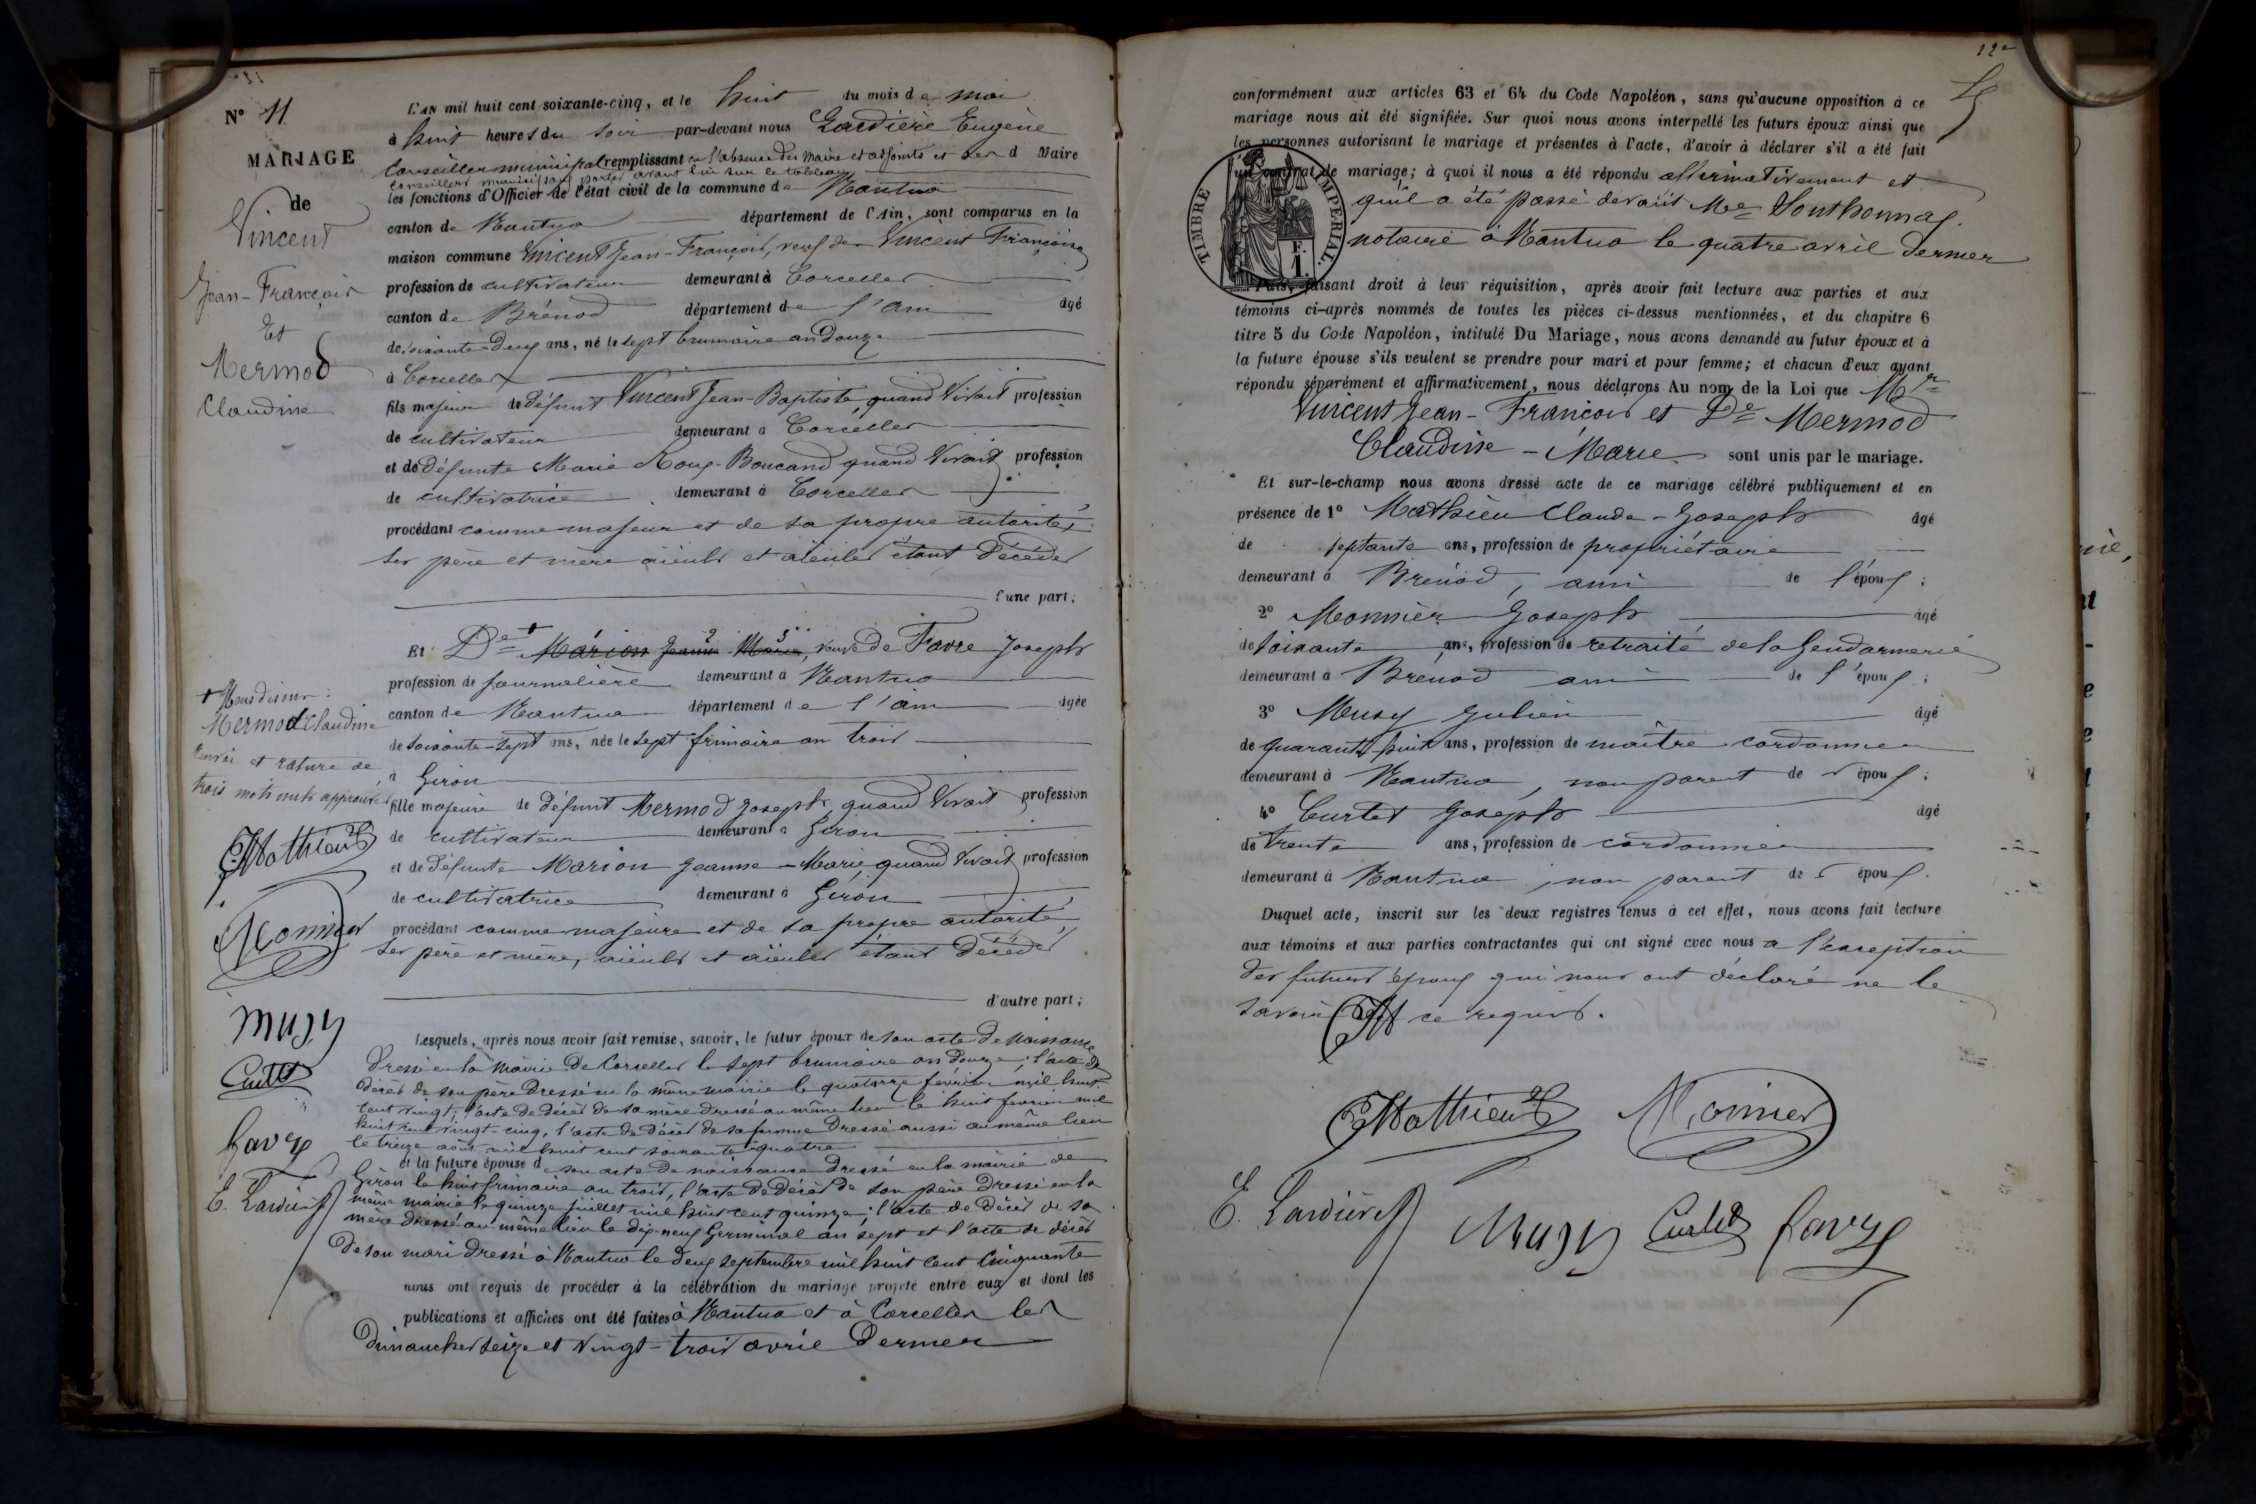 N° 11
MARIAGE
de
Vincent
Jean-François
Et
Mermod
Claudine
L'AN mil huit cent soixante-cinq, et le huit du mois de mai
à huit heures du soir par-devant nous Lardière Eugène
Conseiller municipal remplissant en l'absence des Maire et adjoints et des d Maire
Conseillers municipaux portés avant lui sur le tableau
les fonctions d'Officier de l'état civil de la commune de Nantua
canton de Nantua département de l'Ain, sont comparus en la
maison commune Vincent Jean-François, veuf de Vincent Françoise
profession de cultivateur demeurant à Corcelles
canton de Brénod département de l'ain âgé
de soixante-deux ans, né le sept brumaire an douze
à Corcelles
fils majeur de défunt Vincent Jean-Baptiste, quand vivait profession
de cultivateur demeurant à Corcelles
et de défunte Marie Roux-Boucand quand vivait profession
de cultivatrice demeurant à Corcelles
procédant comme majeur et de sa propre autorité,
ses père et mère aïeuls et aïeules étant décédés
d'une part;
Et De + Marion Jeanne Marie, veuve de Favre Joseph
profession de journalière demeurant à Nantua
canton de Nantua département de l'ain âgée
de soixante-sept ans, née le sept frimaire an trois
à Giron
fille majeure de défunt Mermod Joseph, quand vivait profession
de cultivateur demeurant à Giron
et de défunte Marion Jeanne-Marie, quand vivait profession
de cultivatrice demeurant à Giron
procédant comme majeure et de sa propre autorité,
ses père et mère, aïeuls et aïeules étant décédés
d'autre part;
+ Nous disons:
Mermod Claudine
renvoi et rature de
trois mots nuls approuvés
CMathieu
Monnier
Musy
Curtet
Favre
E. Lardière
Lesquels, après nous avoir fait remise, savoir, le futur époux de son acte de Naissance
dressé en la Mairie de Corcelles le sept brumaire an douze; l'acte de
décès de son père dressé en la même mairie le quatorze février mil huit
cent vingt; l'acte de décès de sa mère dressé au même lieu le huit février mil
huit cent vingt-cinq, l'acte de décès de sa femme dressé aussi au même lieu
le treize août mil huit cent soixante quatre
et la future épouse de son acte de naissance dressé en la mairie de
Giron le huit frimaire an trois, l'acte de décès de son père dressé en la
même mairie le quinze juillet mil huit cent quinze; l'acte de décès de sa
mère dressé au même lieu le dix-neuf Germinal an sept et l'acte de décès
de son mari dressé à Nantua le deux septembre mil huit cent cinquante
nous ont requis de procéder à la célébration du mariage projeté entre eux et dont les
publications et affiches ont été faites à Nantua et à Corcelles les
dimanches seize et vingt-trois avril dernier
conformément aux articles 63 et 64 du Code Napoléon, sans qu'aucune opposition à ce
mariage nous ait été signifiée. Sur quoi nous avons interpellé les futurs époux ainsi que
les personnes autorisant le mariage et présentes à l'acte, d'avoir à déclarer s'il a été fait
un contrat de mariage; à quoi il nous a été répondu affirmativement et
qu'il a été passé devant Me Southonnax
notaire à Nantua le quatre avril dernier
TIMBRE IMPERIAL
F.
1.
Puis, faisant droit à leur réquisition, après avoir fait lecture aux parties et aux
témoins ci-après nommés de toutes les pièces ci-dessus mentionnées, et du chapitre 6
titre 5 du Code Napoléon, intitulé Du Mariage, nous avons demandé au futur époux et à
la future épouse s'ils veulent se prendre pour mari et pour femme; et chacun d'eux ayant
répondu séparément et affirmativement, nous déclarons Au nom de la Loi que Mr
Vincent Jean-François et De Mermod
Claudine-Marie sont unis par le mariage.
Et sur-le-champ nous avons dressé acte de ce mariage célébré publiquement et en
présence de 1° Mathieu Claude-Joseph âgé
de septante ans, profession de propriétaire
demeurant à Brénod, ami de l'époux;
2° Monnier Joseph âgé
de soixante ans, profession de retraité de la Gendarmerie
demeurant à Brénod ami de l'époux;
3° Musy Julien âgé
de quarante-huit ans, profession de maître cordonnier
demeurant à Nantua, non parent de l'époux;
4° Curtet Joseph âgé
de trente ans, profession de cordonnier
demeurant à Nantua, non parent de l'époux.
Duquel acte, inscrit sur les deux registres tenus à cet effet, nous avons fait lecture
aux témoins et aux parties contractantes qui ont signé avec nous à l'exception
des futurs époux qui nous ont déclaré ne le
savoir de ce requis.
CMathieu Monnier
E. Lardière Musy Curtet Favre